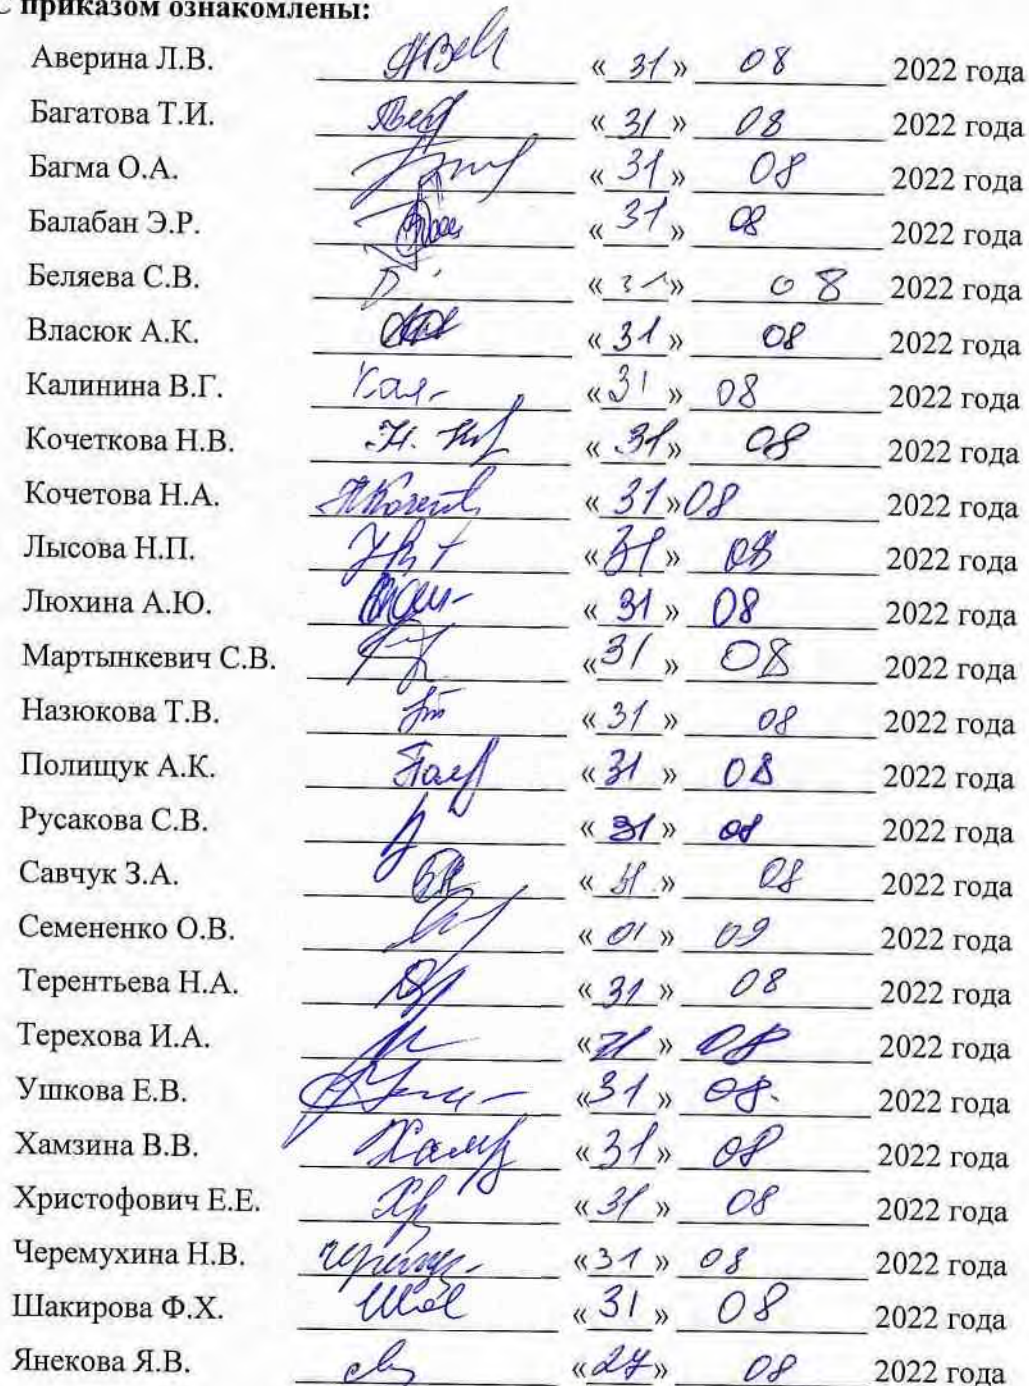 С приказом ознакомлены:
Аверина Л.В. « 31 » 08 2022 года
Багатова Т.И. « 31 » 08 2022 года
Багма О.А. « 31 » 08 2022 года
Балабан Э.Р. « 31 » 08 2022 года
Беляева С.В. « 31 » 08 2022 года
Власюк А.К. « 31 » 08 2022 года
Калинина В.Г. Кал- « 31 » 08 2022 года
Кочеткова Н.В. « 31 » 08 2022 года
Кочетова Н.А. « 31 » 08 2022 года
Лысова Н.П. « 31 » 08 2022 года
Люхина А.Ю. « 31 » 08 2022 года
Мартынкевич С.В. « 31 » 08 2022 года
Назюкова Т.В. « 31 » 08 2022 года
Полищук А.К. « 31 » 08 2022 года
Русакова С.В. « 31 » 08 2022 года
Савчук З.А. « 31 » 08 2022 года
Семененко О.В. « 01 » 09 2022 года
Терентьева Н.А. « 31 » 08 2022 года
Терехова И.А. « 31 » 08 2022 года
Ушкова Е.В. « 31 » 08. 2022 года
Хамзина В.В. « 31 » 08 2022 года
Христофович Е.Е. « 31 » 08 2022 года
Черемухина Н.В. « 31 » 08 2022 года
Шакирова Ф.Х. « 31 » 08 2022 года
Янекова Я.В. « 27 » 08 2022 года